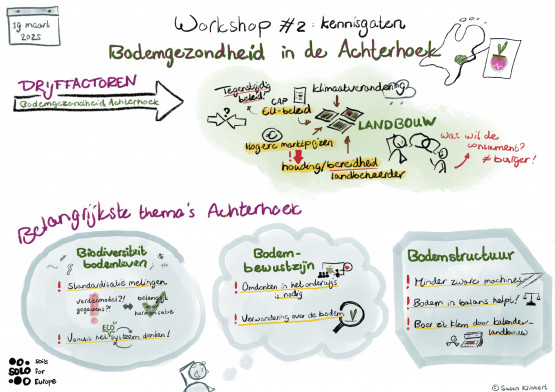 19 maart
2025
Workshop #2: kennisgaten
Bodemgezondheid in de Achterhoek
DRIJFFACTOREN
Bodemgezondheid Achterhoek
Tegenstrijdig
beleid!
klimaatverandering
?
CAP
EU-beleid
LANDBOUW
Hogere marktprijzen
!
houding/bereidheid
landbeheerder
wat wil de
consument?
≠ burger!
Belangrijkste thema's Achterhoek
Biodiversiteit
bodemleven
! Standaardisatie metingen
verdienmodel?!
gegevens?!
belangrijk
harmonisatie
! Vanuit het systeem denken!
Bodem-
bewustzijn
! Omdenken in het onderwijs
is nodig
! Verwondering over de bodem
Bodemstructuur
! Minder zware machines
! Bodem in balans helpt!
! Boer zit klem door kalender-
landbouw
soils
SOLO for
Europe
© Susan Klinkert